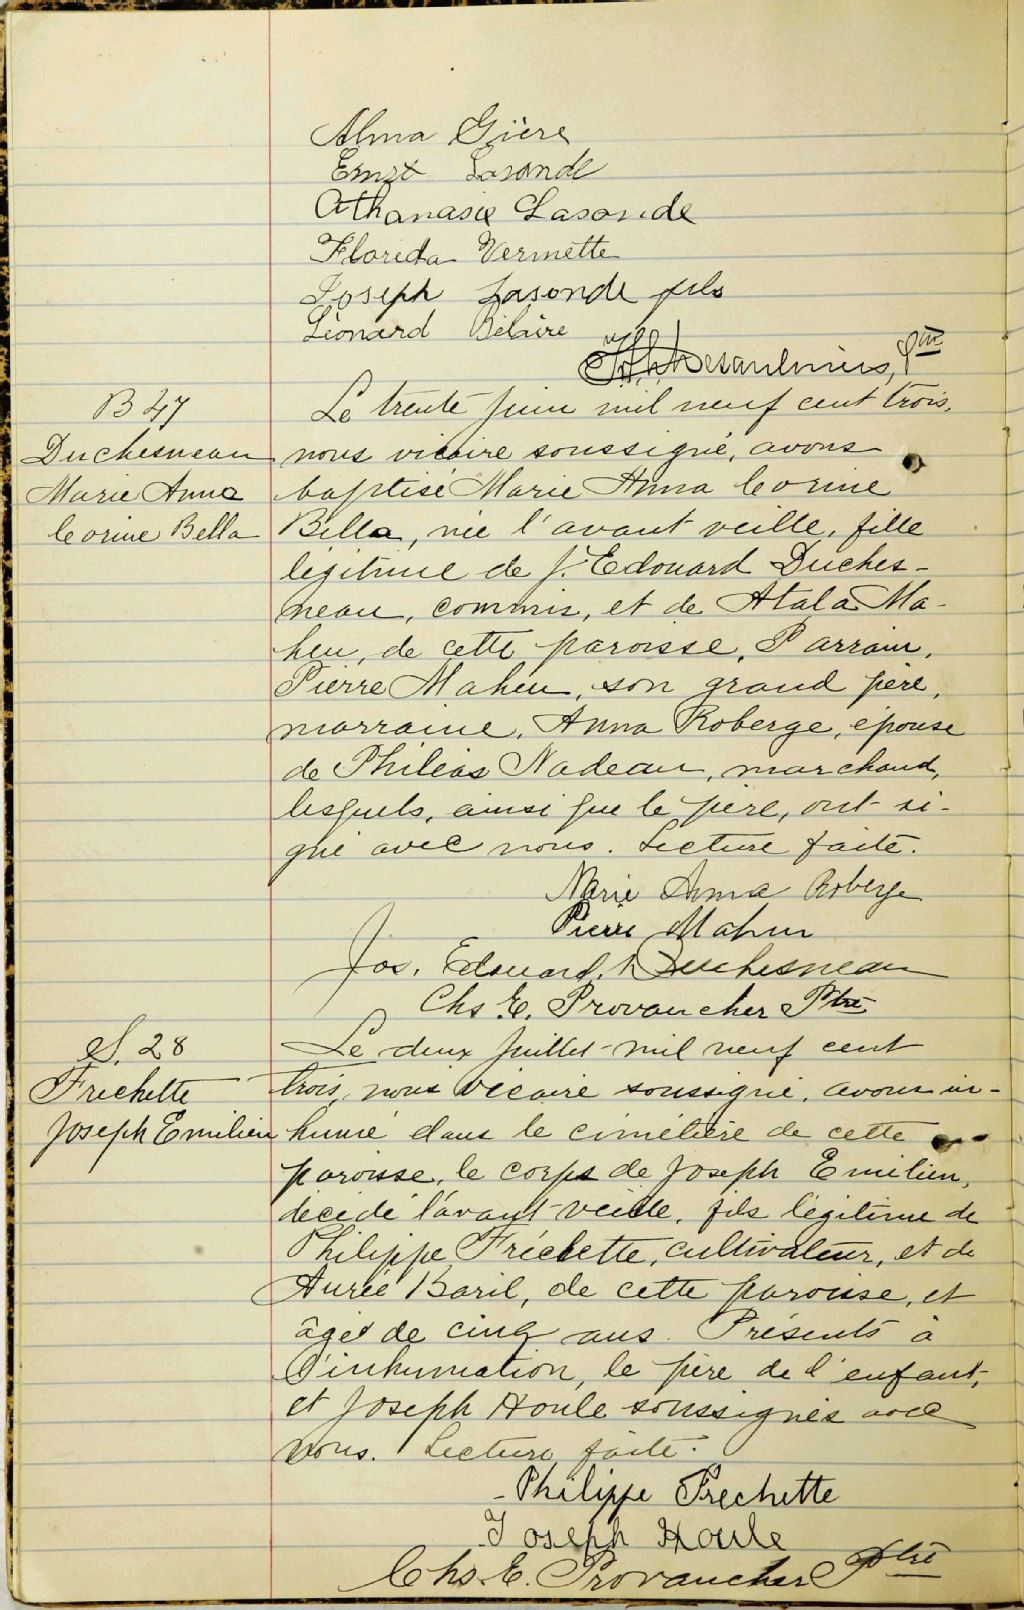 Alma Gière
Ernest Lasonde
Athanasie Lasonde
Florida Vermette
Joseph Lasonde fils
Léonard Bélaire
Desaulniers, Ptre
B 47
Duchesneau
Marie Anna
Corine Bella
Le trente juin mil neuf cent trois,
nous vicaire soussigné, avons
baptisé Marie Anna Corine
Bella, née l'avant veille, fille
légitime de J. Edouard Duches-
neau, commis, et de Atala Ma-
heu, de cette paroisse. Parrain,
Pierre Maheu, son grand père,
marraine, Anna Roberge, épouse
de Philéas Nadeau, marchand,
lesquels, ainsi que le père, ont si-
gné avec nous. Lecture faite.
Marie Anna Roberge
Pierre Maheu
Jos. Edouard Duchesneau
Chs E. Provancher Ptre
S. 28
Frechette
Joseph Emilien
Le deux Juillet mil neuf cent
trois, nous vicaire soussigné, avons in-
humé dans le cimetière de cette
paroisse, le corps de Joseph Emilien,
décédé l'avant-veille, fils légitime de
Philippe Fréchette, cultivateur, et de
Aurée Baril, de cette paroisse, et
âgé de cinq ans. Présents à
l'inhumation, le père de l'enfant,
et Joseph Houle soussignés avec
nous. Lecture faite.
Philippe Frechette
Joseph Houle
Chs. E. Provancher Ptre